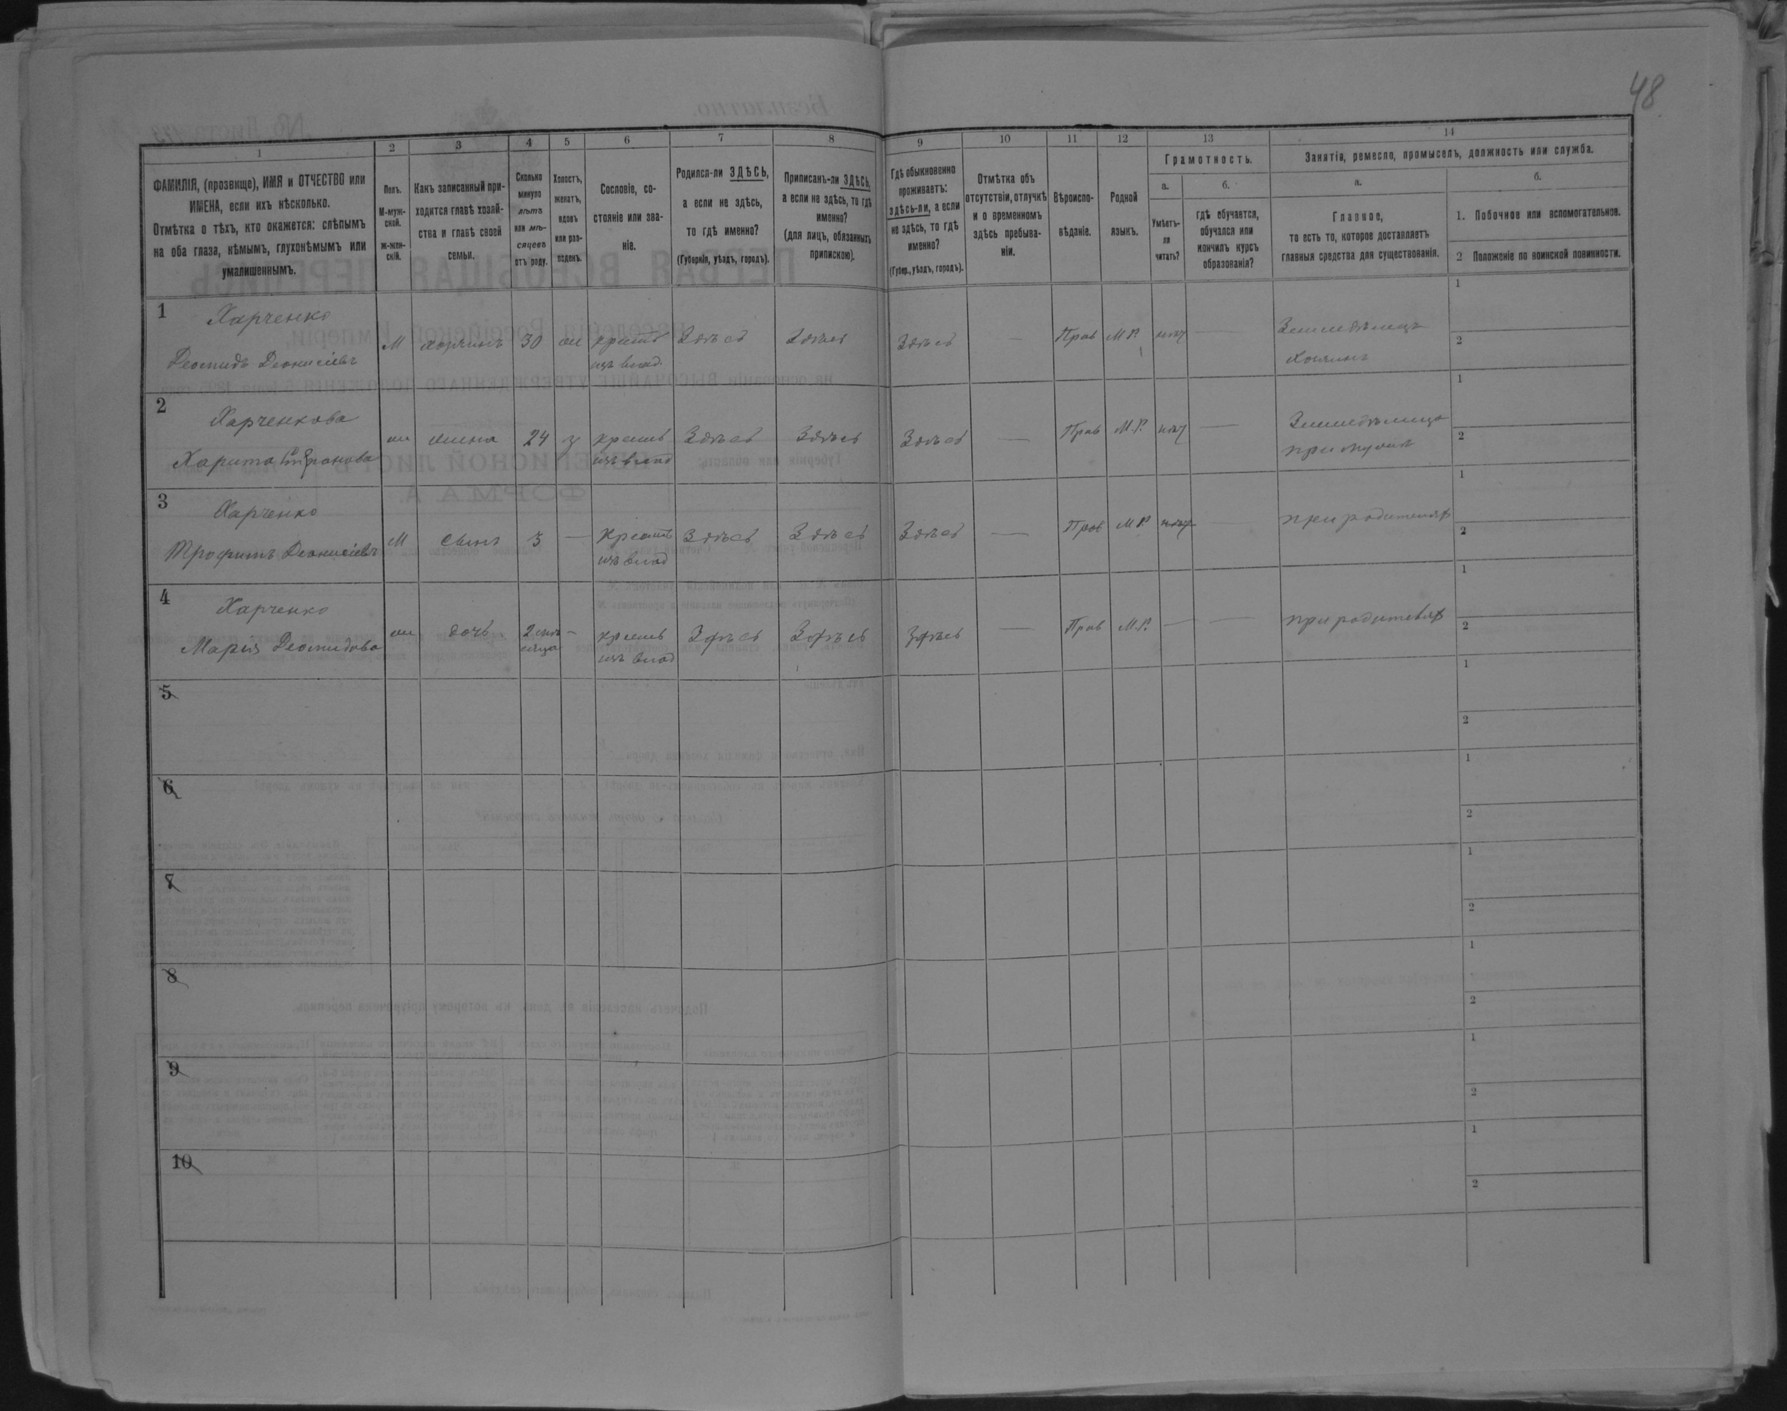 48
1 2 3 4 5 6 7 8 9 10 11 12 13 14
ФАМИЛІЯ, (прозвище), ИМЯ и ОТЧЕСТВО или
ИМЕНА, если ихъ нѣсколько.
Отмѣтка о тѣхъ, кто окажется: слѣпымъ
на оба глаза, нѣмымъ, глухонѣмымъ или
умалишеннымъ.
Полъ.
М-муж-
ской.
Ж-жен-
скій.
Какъ записанный при-
ходится главѣ хозяй-
ства и главѣ своей
семьи.
Сколько
минуло
лѣтъ
или мѣ-
сяцевъ
отъ роду.
Холостъ,
женатъ,
вдовъ
или раз-
веденъ.
Сословіе, со-
стояніе или зва-
ніе.
Родился-ли ЗДѢСЬ,
а если не здѣсь,
то гдѣ именно?
(Губернія, уѣздъ, городъ).
Приписанъ-ли ЗДѢСЬ,
а если не здѣсь, то гдѣ
именно?
(для лицъ, обязанныхъ
припискою).
Гдѣ обыкновенно
проживаетъ:
здѣсь-ли, а если
не здѣсь, то гдѣ
именно?
(Губер., уѣздъ, городъ).
Отмѣтка объ
отсутствіи, отлучкѣ
и о временномъ
здѣсь пребыва-
ніи.
Вѣроиспо-
вѣданіе.
Родной
языкъ.
Грамотность.
а.
Умѣетъ-
ли
читать?
б.
гдѣ обучается,
обучался или
кончилъ курсъ
образованія?
Занятія, ремесло, промыселъ, должность или служба.
а.
Главное,
то есть то, которое доставляетъ
главныя средства для существованія.
б.
1. Побочное или вспомогательное.
2 Положеніе по воинской повинности.
1 Харченко
Деомидъ Деонисіевъ М хозяинъ 30 ж крест Здѣсь Здѣсь Здѣсь — Прав М.Р. нѣт — Земледѣлецъ 1
изъ влад. Хозяинъ 2
2 Харченкова
Харита ж жена 24 з крест Здѣсь Здѣсь Здѣсь — Прав М.Р. нѣт — Земледѣлица 1
изъ влад при мужѣ 2
3 Харченко
Трофимъ Деонисіевъ М сынъ 3 — Крест Здѣсь Здѣсь Здѣсь — Прав М.Р. нѣт — при родителях 1
изъ влад 2
4 Харченко
Марія Деомидова ж дочь 2 мѣ- — крест Здѣсь Здѣсь Здѣсь — Прав М.Р. — — при родителях 1
сяца изъ влад 2
5 1
2
6 1
2
7 1
2
8 1
2
9 1
2
10 1
2